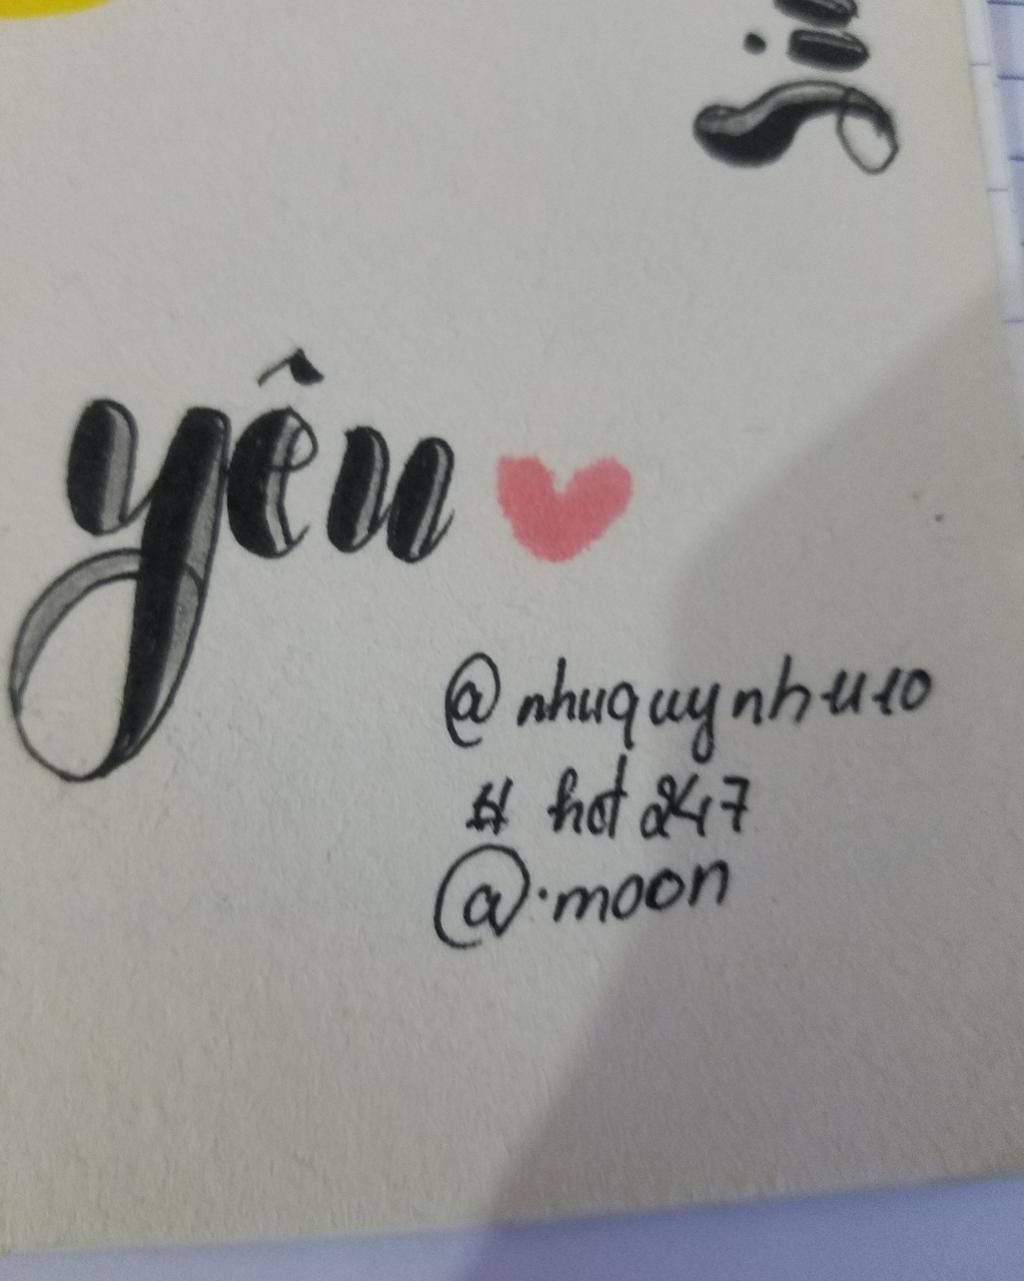 yêu
@nhuquynhuio
# hot 247
@.moon